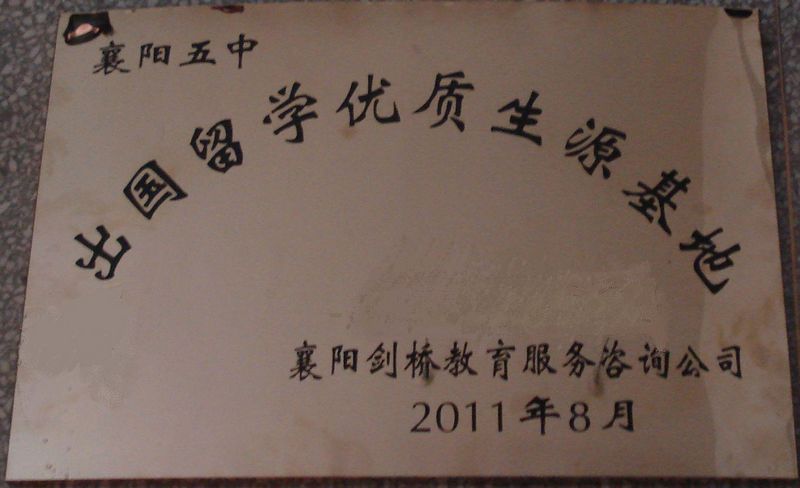 襄阳五中
出国留学优质生源基地
襄阳剑桥教育服务咨询公司
2011年8月